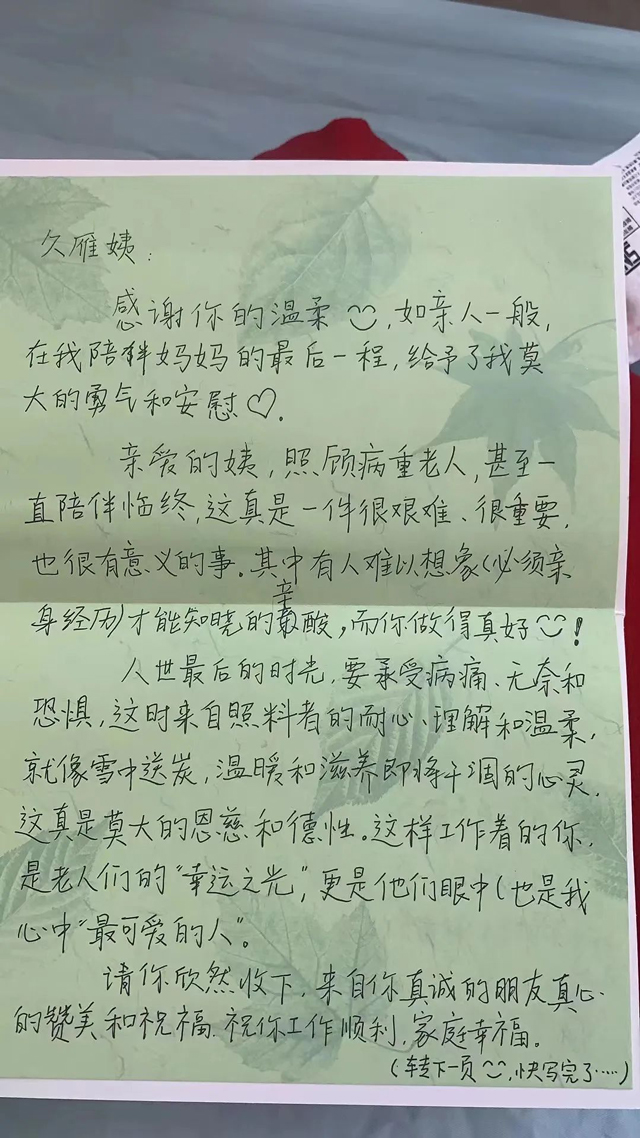 久雁姨：
感谢你的温柔☺，如亲人一般，
在我陪伴妈妈的最后一程，给予了我莫
大的勇气和安慰♡.
亲爱的姨，照顾病重老人，甚至一
直陪伴临终，这真是一件很艰难、很重要，
也很有意义的事。其中有人难以想象（必须亲
身经历）才能知晓的辛酸，而你做得真好☺！
人世最后的时光，要承受病痛、无奈和
恐惧，这时来自照料者的耐心、理解和温柔，
就像雪中送炭，温暖和滋养即将干涸的心灵，
这真是莫大的恩慈和德性。这样工作着的你，
是老人们的“幸运之光”，更是他们眼中（也是我
心中“最可爱的人”。
请你欣然收下，来自你真诚的朋友真心
的赞美和祝福. 祝你工作顺利，家庭幸福。
（转下一页☺，快写完了……）